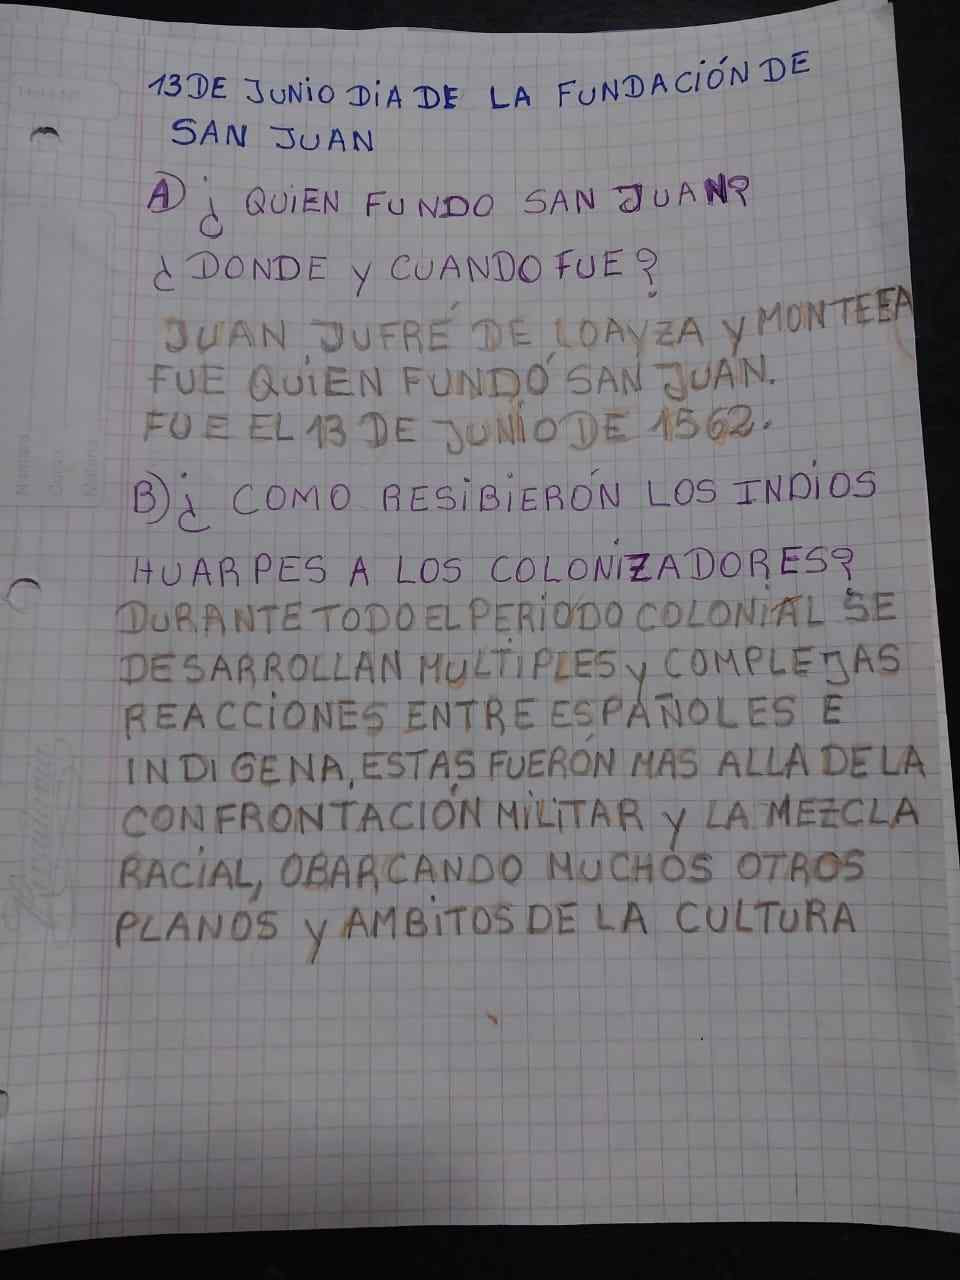 13 DE JUNIO DIA DE LA FUNDACIÓN DE
SAN JUAN
A) ¿ QUIEN FUNDO SAN JUAN?
¿ DONDE Y CUANDO FUE?
JUAN JUFRÉ DE LOAYZA Y MONTEEA
FUE QUIEN FUNDÓ SAN JUAN.
FUE EL 13 DE JUNIO DE 1562.
B) ¿ COMO RESIBIERÓN LOS INDIOS
HUARPES A LOS COLONIZADORES?
DURANTE TODO EL PERIODO COLONIAL SE
DESARROLLAN MULTIPLES Y COMPLEJAS
REACCIONES ENTRE ESPAÑOLES E
INDIGENA, ESTAS FUERÓN MAS ALLA DE LA
CONFRONTACIÓN MILITAR Y LA MEZCLA
RACIAL, OBARCANDO MUCHOS OTROS
PLANOS Y AMBITOS DE LA CULTURA